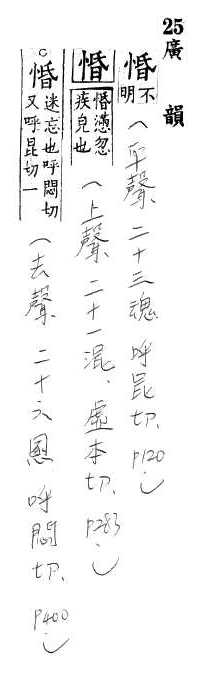 25廣韻
惛不明(平聲 二十三魂 呼昆切、p120)
惛惛懣忽疾皃也(上聲 二十一混、虛本切、p283)
惛迷忘也呼悶切又呼昆切一(去聲 二十六慁 呼悶切、p400)